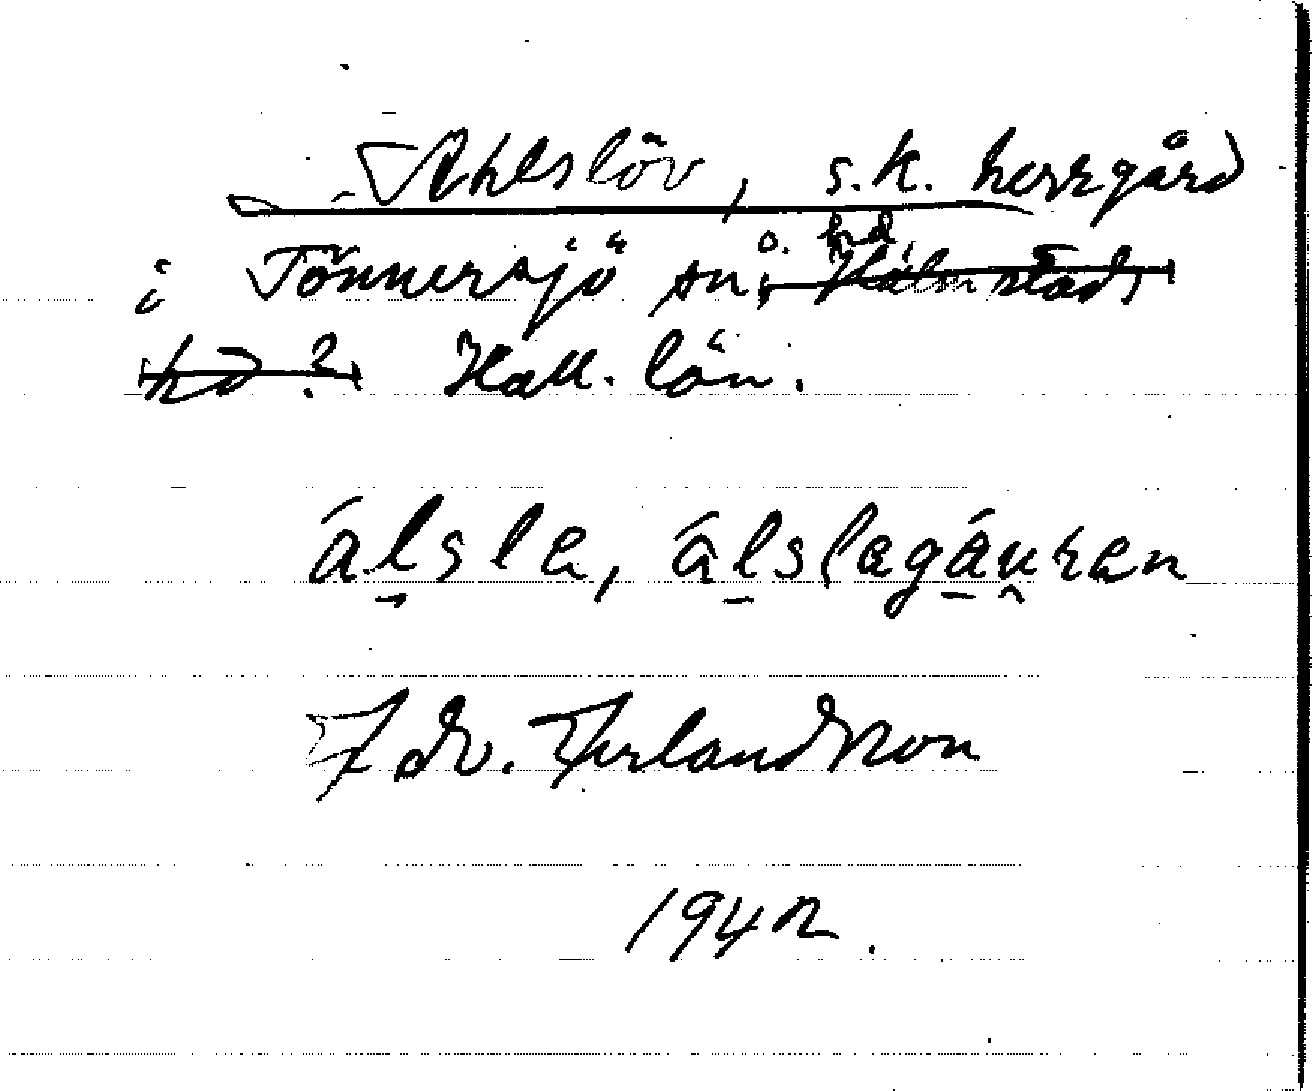 Ahlslöv, s.k. herrgård
i Tönnersjö sn, o. hd, Halmstads
hd? Hall. län.
álsla, álslagáuran
Edv. Furlandsson
1942.